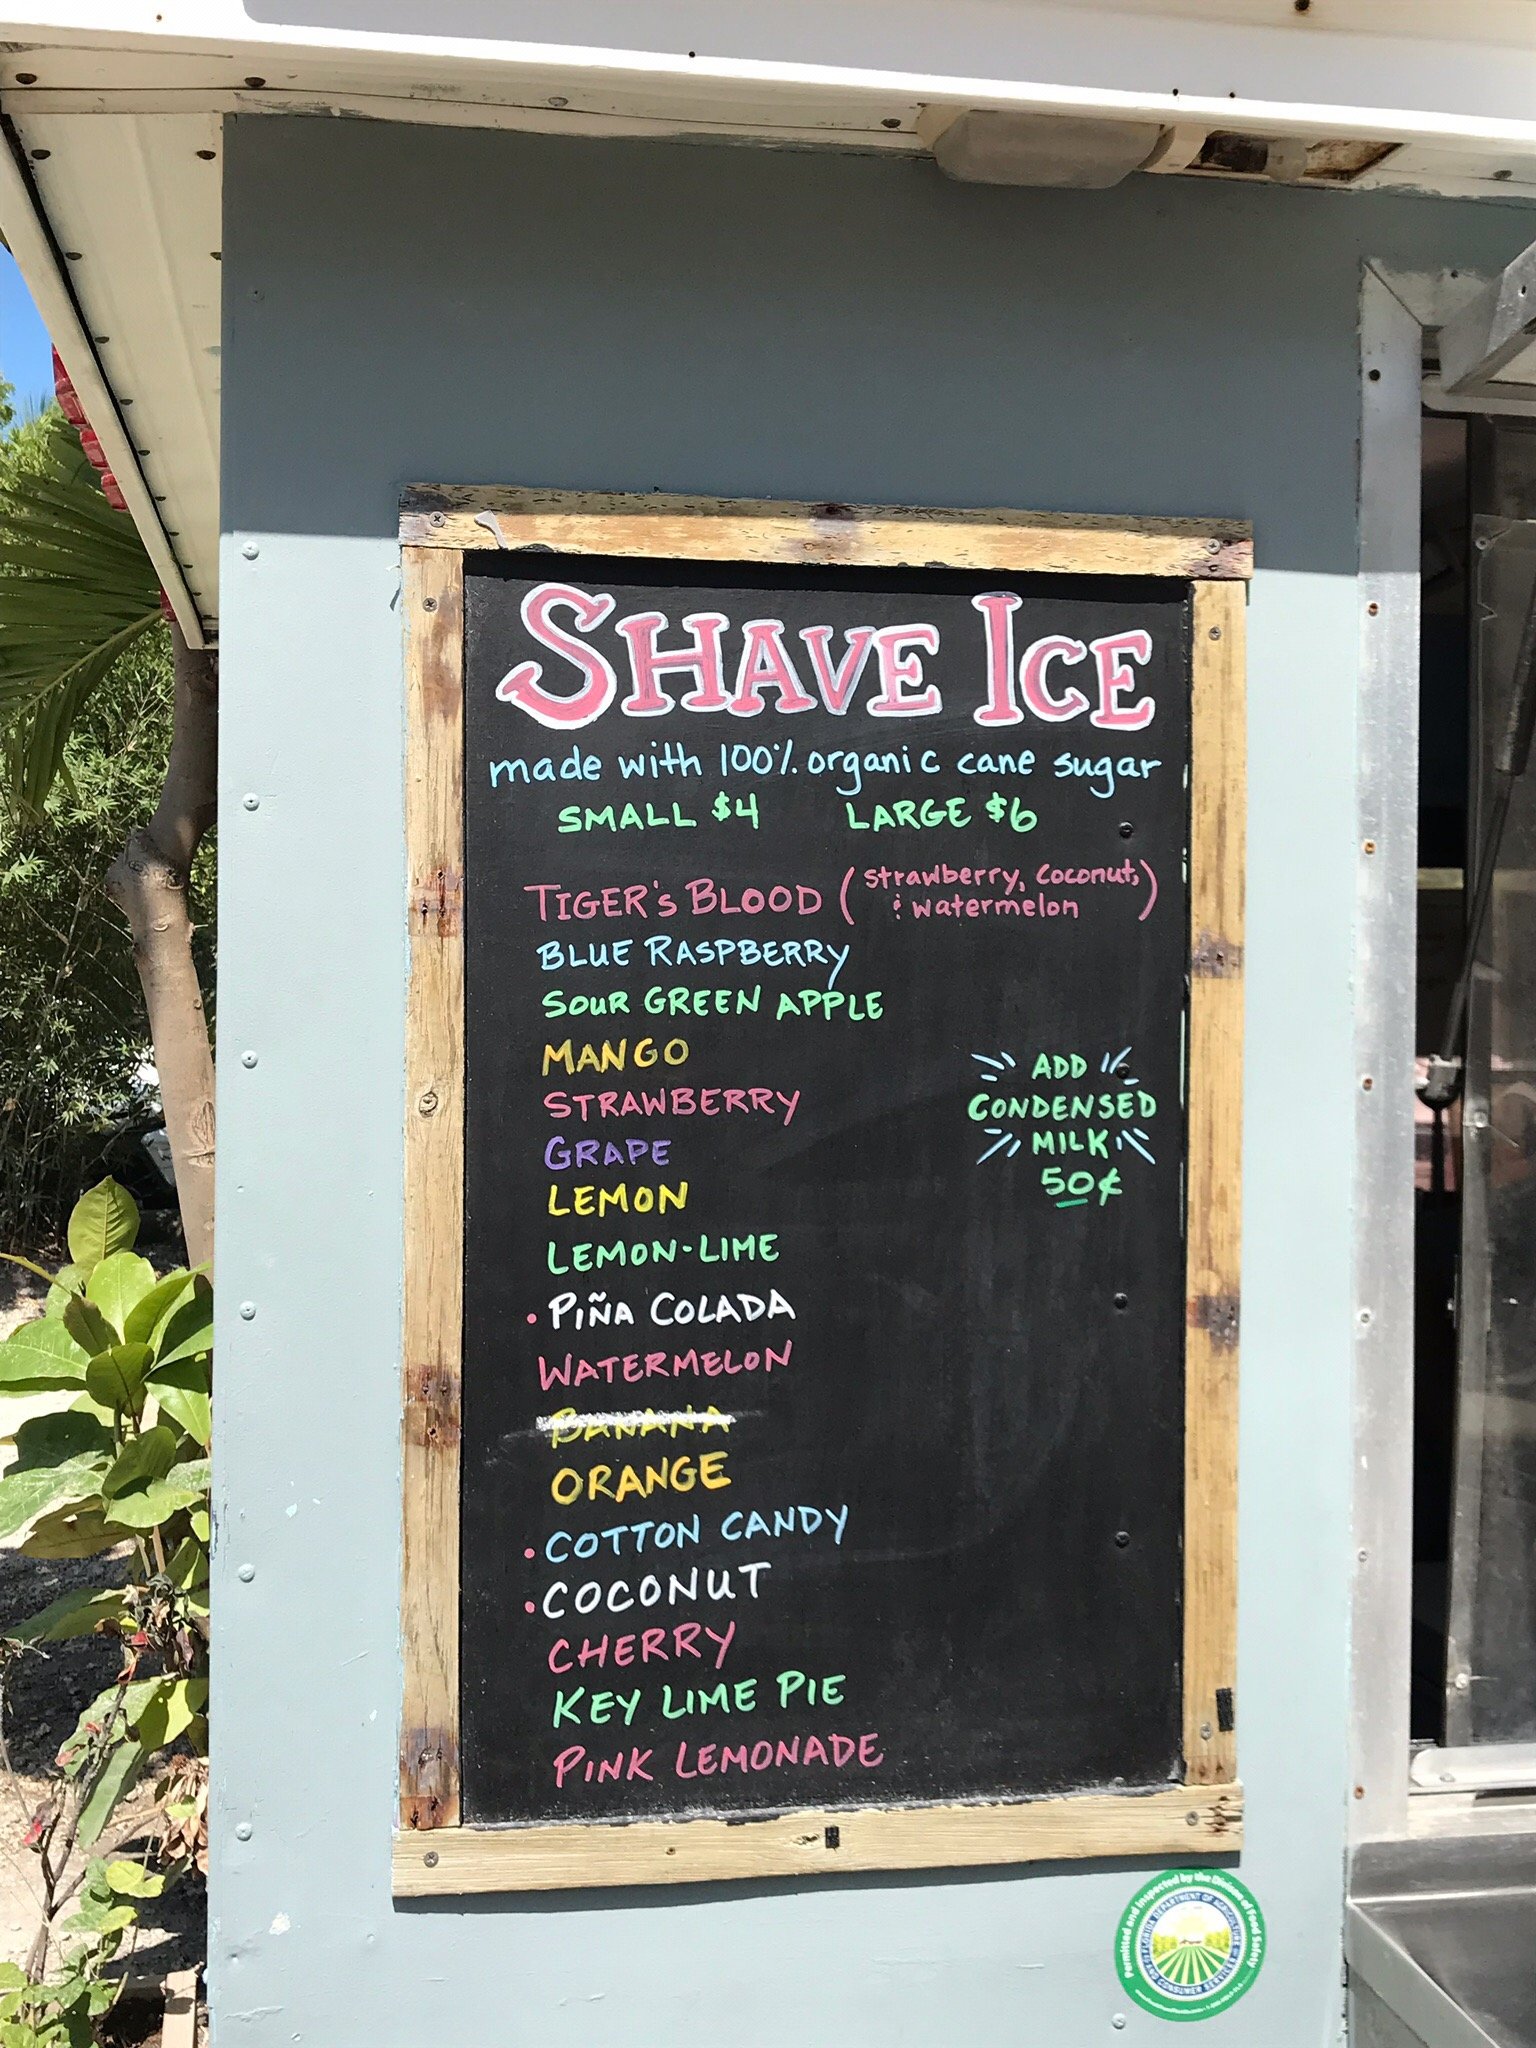 SHAVE ICE
made with 100% organic cane sugar
SMALL $4 LARGE $6
TIGER'S BLOOD (strawberry, coconut, & watermelon)
BLUE RASPBERRY
SOUR GREEN APPLE
MANGO
STRAWBERRY
GRAPE
LEMON
LEMON-LIME
• PIÑA COLADA
WATERMELON
BANANA
ORANGE
• COTTON CANDY
• COCONUT
CHERRY
KEY LIME PIE
PINK LEMONADE
ADD
CONDENSED
MILK
50¢
Permitted and Inspected by the Division of Food Safety
FLORIDA DEPARTMENT OF AGRICULTURE
AND CONSUMER SERVICES